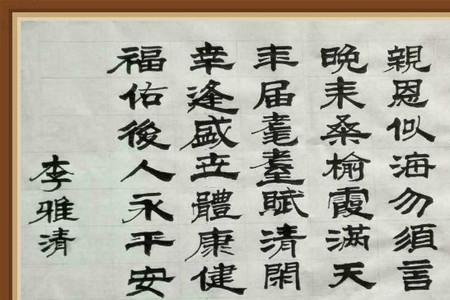 親恩似海勿須言
晚来桑榆霞滿天
年届耄耋賦清閑
幸逢盛世體康健
福佑後人永平安
李雅清